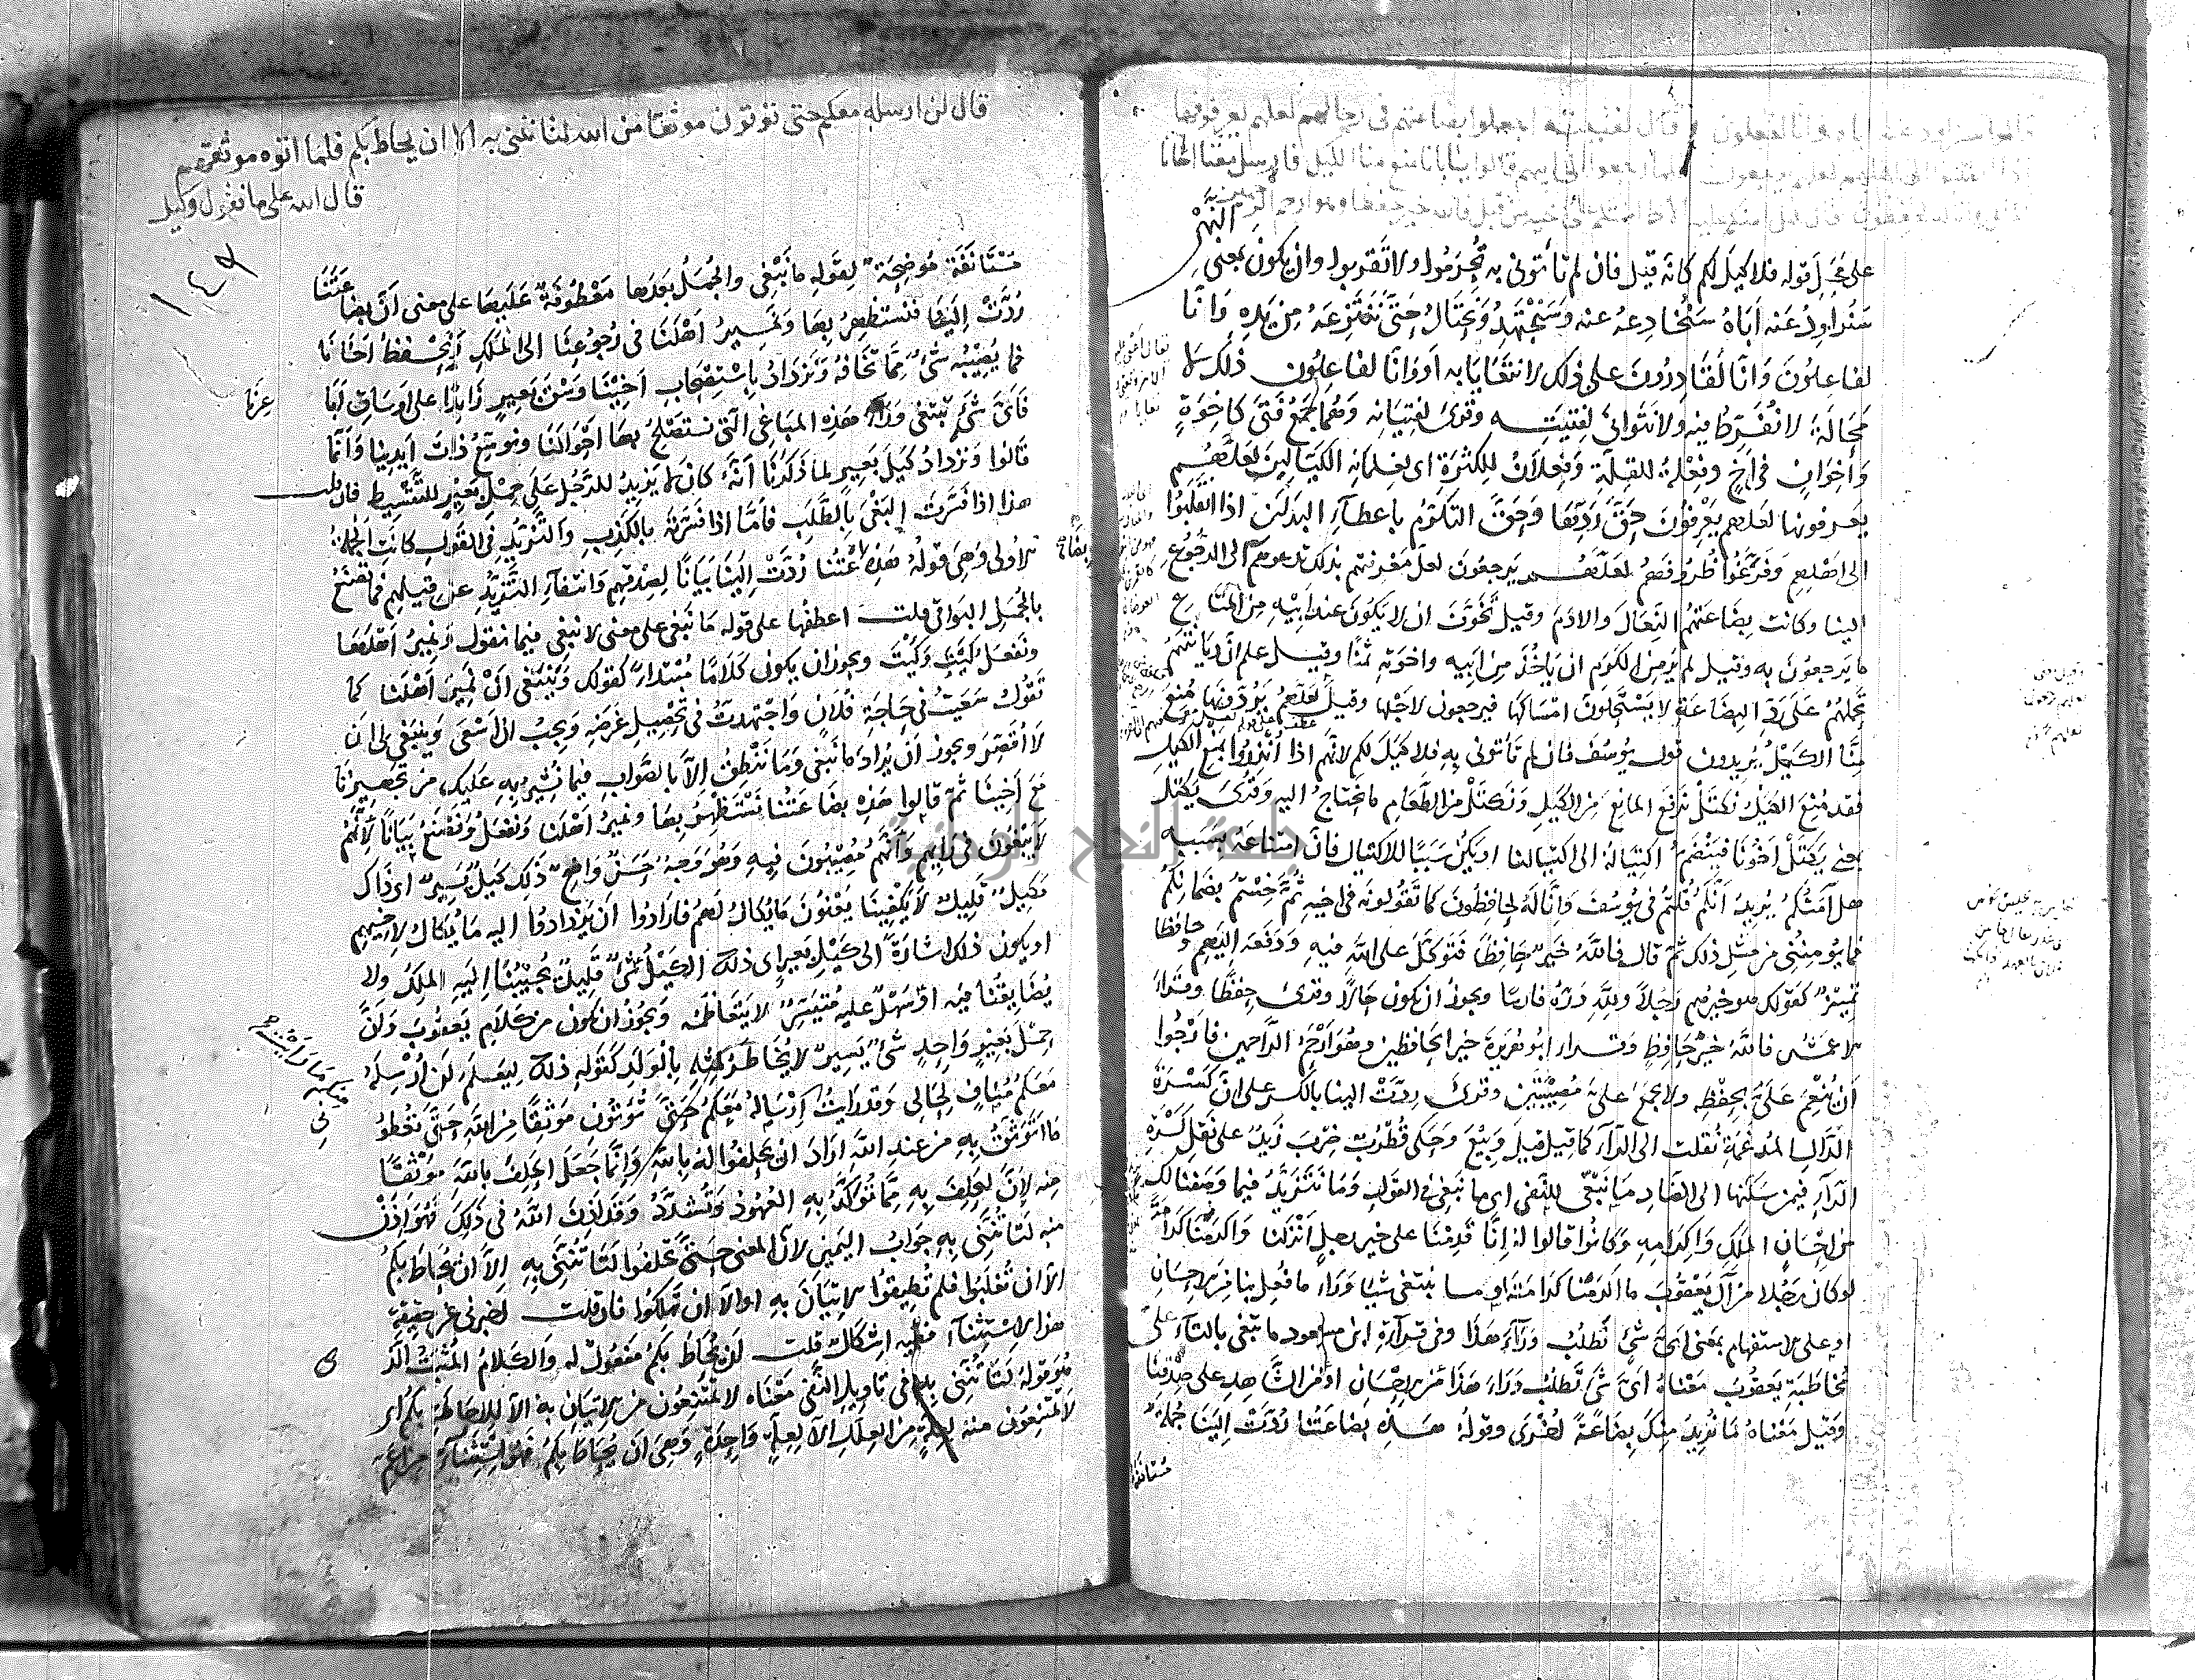 قالوا سنراود عنه اباه وانا لفعلون وقال لفتيته اجعلوا بضاعتهم في رحالهم لعلهم يعرفونها
اذا انقلبوا الى اهلهم لعلهم يرجعون فلما رجعوا الى ابيهم قالوا يا ابانا منع منا الكيل فارسل معنا اخانا
نكتل وانا له لحفظون قال هل امنكم عليه الا كما امنتكم على اخيه من قبل فالله خير حفظا وهو ارحم الرحمين
على محل قوله فلا كيل لكم كانه قيل فان لم تاتوني به تحرموا ولا تقربوا وان يكون بمعنى النهي
سنراود عنه اباه سنخادعه عنه وسنجتهد ونحتال حتى ننتزعه من يده وانا
لفاعلون وانا لقادرون على ذلك لا نتعايا به او وانا لفاعلون ذلك لا
محالة لا نفرط فيه ولا نتوانى لفتيته وقرئ لفتيانه وهما جمع فتى كاخوة
واخوان في اخ وفعلة للقلة وفعلان للكثرة اي لغلمانه الكيالين لعلهم
يعرفونها لعلهم يعرفون حق ردها وحق التكرم باعطاء البدلين اذا انقلبوا
الى اهلهم وفرغوا ظروفهم لعلهم يرجعون لعل معرفتهم بذلك تدعوهم الى الرجوع
الينا وكانت بضاعتهم النعال والادم وقيل تخوف ان لا يكون عند ابيه من المتاع
ما يرجعون به وقيل لم ير من الكرم ان ياخذ من ابيه واخوته ثمنا وقيل علم ان ديانتهم
تحملهم على رد البضاعة لا يستحلون امساكها فيرجعون لاجلها وقيل لعلهم يردونها منع
منا الكيل يريدون قول يوسف فان لم تاتوني به فلا كيل لكم لانهم اذا انذروا بمنع الكيل
فقد منع الكيل نكتل نرفع المانع من الكيل ونكتل من الطعام ما نحتاج اليه وقرئ يكتل
بمعنى يكتل اخونا فينضم اكتياله الى اكتيالنا او يكن سببا للاكتيال فان امتناعه بسببه
هل آمنكم يريد انكم قلتم في يوسف وانا له لحافظون كما تقولونه في اخيه ثم خنتم بضمانكم
فما يؤمنني من مثل ذلك ثم قال فالله خير حافظا فتوكل على الله فيه ودفعه اليهم وحافظا
تمييز كقولك هو خيرهم رجلا ولله دره فارسا ويجوز ان يكون حالا وقرئ حفظا وقرا
الاعمش فالله خير حافظ وقرا ابو هريرة خير الحافظين وهو ارحم الراحمين فارجوا
ان ينعم علي بحفظه ولا يجمع علي مصيبتين وقرئ ردت الينا بالكسر على ان كسرة
الدال المدغمة نقلت الى الراء كما قيل قيل وبيع وحكى قطرب ضرب زيد على نقل كسرة
الراء فيمن سكنها الى الضاد ما نبغي للنفي اي ما نبغي في القول وما نتزيد فيما وصفنا لك
من احسان الملك واكرامه وكانوا قالوا له انا قدمنا على خير رجل انزلنا واكرمنا كرامة
لو كان رجلا من آل يعقوب ما اكرمنا كرامته او ما نبتغي شيئا وراء ما فعل بنا من الاحسان
او على الاستفهام بمعنى اي شئ نطلب وراء هذا وفي قراءة ابن مسعود ما تبغي بالتاء على
مخاطبة يعقوب معناه اي شئ تطلب وراء هذا من الاحسان او من الشاهد على صدقنا
وقيل معناه ما نريد منك بضاعة اخرى وقوله هذه بضاعتنا ردت الينا جملة
مستانفة
قال لن ارسله معكم حتى تؤتون موثقا من الله لتاتنني به الا ان يحاط بكم فلما اتوه موثقهم
قال الله على ما نقول وكيل
١٤٧
مستانفة موضحة لقوله ما نبغي والجمل بعدها معطوفة عليها على معنى ان بضاعتنا
ردت الينا فنستظهر بها ونمير اهلنا في رجوعنا الى الملك ونحفظ اخانا
فما يصيبه شئ مما تخافه ونزداد باستصحاب اخينا وسق بعير زايدا على اوساق اباعرنا
فاي شئ نبتغي وراء هذه المباغي التي نستصلح بها احوالنا ونوسع ذات ايدينا وانما
قالوا ونزداد كيل بعير لما ذكرنا انه كان لا يزيد للرجل على حمل بعير للتقسيط فان قلت
هذا اذا فسرت البغي بالطلب فاما اذا فسرته بالكذب والتزيد في القول كانت الجملة
الاولى وهي قوله هذه بضاعتنا ردت الينا بيانا لصدقهم وانتفاء التزيد عن قيلهم فما تصنع
بالجمل البواقي قلت اعطفها على قوله ما نبغي على معنى لا نبغي فيما نقول ونمير اهلنا
ونفعل كيت وكيت ويجوز ان يكون كلاما مبتدا كقولك وينبغي ان نمير اهلنا كما
تقول سعيت في حاجة فلان واجتهدت في تحصيل غرضه ويجب ان اسعى وينبغي لي ان
لا اقصر ويجوز ان يراد ما نبغي وما ننطق الا بالصواب فيما نشير به عليك من تجهيزنا
مع اخينا ثم قالوا هذه بضاعتنا نستظهر بها ونمير اهلنا ونفعل ونصنع بيانا لانهم
لا يبغون في رايهم وانهم مصيبون فيه وهو وجه حسن واضح ذلك كيل يسير اي ذاك
مكيل قليل لا يكفينا يعنون ما يكال لهم فارادوا ان يزدادوا اليه ما يكال لاخيهم
او يكون ذلك اشارة الى كيل بعير اي ذلك الكيل شئ قليل يجيبنا اليه الملك ولا
يضايقنا فيه او سهل عليه متيسر لا يتعاظمه ويجوز ان يكون من كلام يعقوب وان
حمل بعير واحد شئ يسير لا يخاطر لمثله بالولد كقوله ذلك ليعلم لن ارسله
معكم مناف لحالي وقد رايت ارساله معكم حتى تؤتون موثقا من الله حتى تعطوني
ما اتوثق به من عند الله اراد ان يحلفوا له بالله وانما جعل الحلف بالله موثقا
منه لان الحلف به مما تؤكد به العهود وتشدد وقد اذن الله في ذلك فهو اذن
منه لتاتنني به جواب اليمين لان المعنى حتى تحلفوا لتاتنني به الا ان يحاط بكم
الا ان تغلبوا فلم تطيقوا الاتيان به او الا ان تهلكوا فان قلت اخبرني عن حقيقة
هذا الاستثناء ففيه اشكال قلت ان يحاط بكم مفعول له والكلام المثبت الذي
هو قوله لتاتنني به في تاويل النفي معناه لا تمتنعون من الاتيان به الا للاحاطة بكم اي
لا تمتنعون منه لعلة من العلل الا لعلة واحدة وهي ان يحاط بكم فهو استثناء من اعم